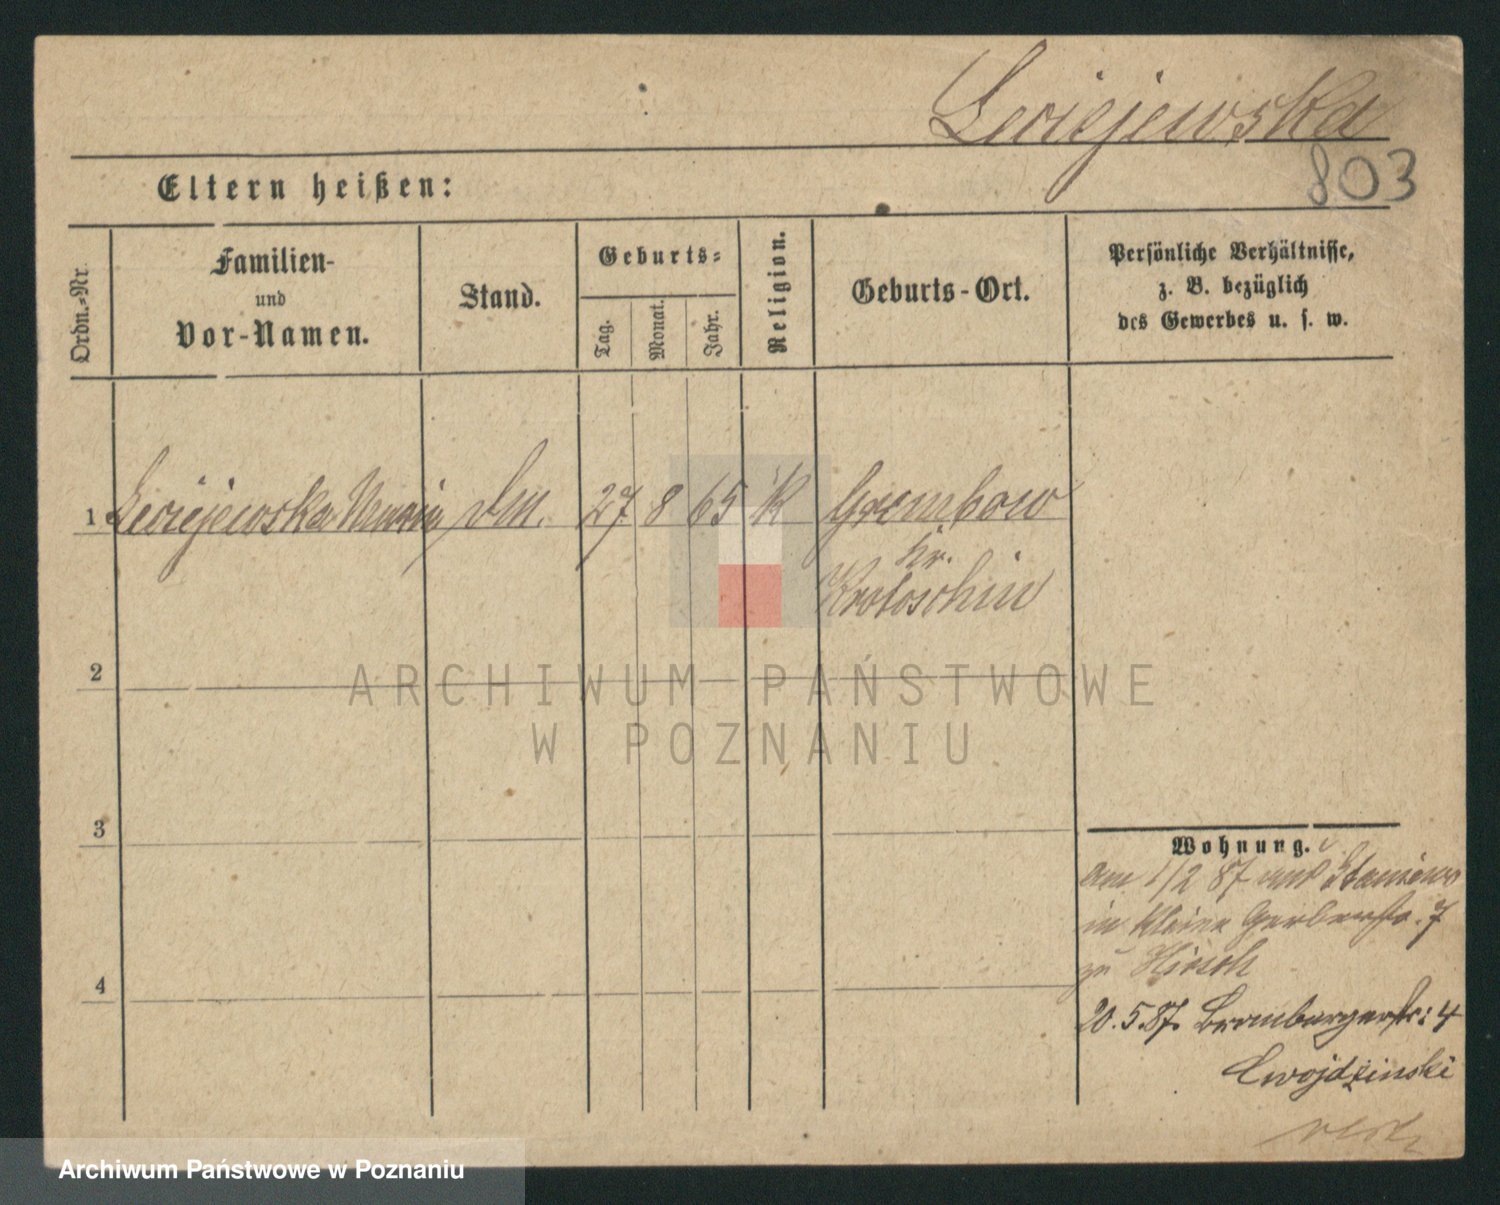 Leciejewska
803
Eltern heißen:
Ordn.-Nr.
Familien-
und
Vor-Namen.
Stand.
Geburts-
Tag.
Monat.
Jahr.
Religion.
Geburts-Ort.
Persönliche Verhältnisse,
z. B. bezüglich
des Gewerbes u. s. w.
1 Leciejewska Maria 27 8 65 K Grembow
Kr.
Krotoschin
2
ARCHIWUM PAŃSTWOWE
W POZNANIU
3
Wohnung.
am 1/2 87 aus
in Kleine Gerberstr. 7
zu Hirsch
4
20.5.87. Brombergerstr: 4
Cwojdzinski
Archiwum Państwowe w Poznaniu